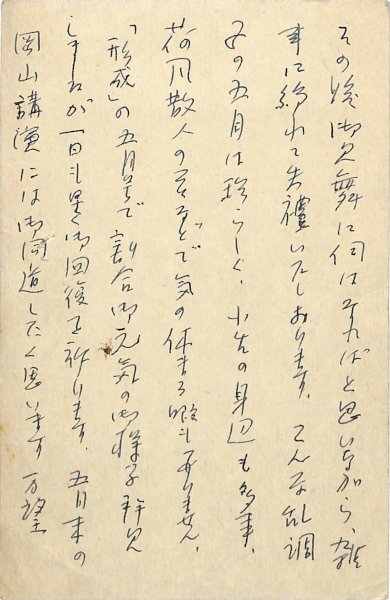 その後御見舞に伺はねばと思ひ乍ら、雑
事に紛れて失禮いたしおります。こんな乱調
の五月は珍らしく、小生の身辺も多事、
荷風散人の死などで気の休まる暇もありません。
「形成」の五月号で割合御元気の御様子拝見
しましたが一日も早く御回復を祈ります。五月末の
岡山講演には御同道したく思います 万望